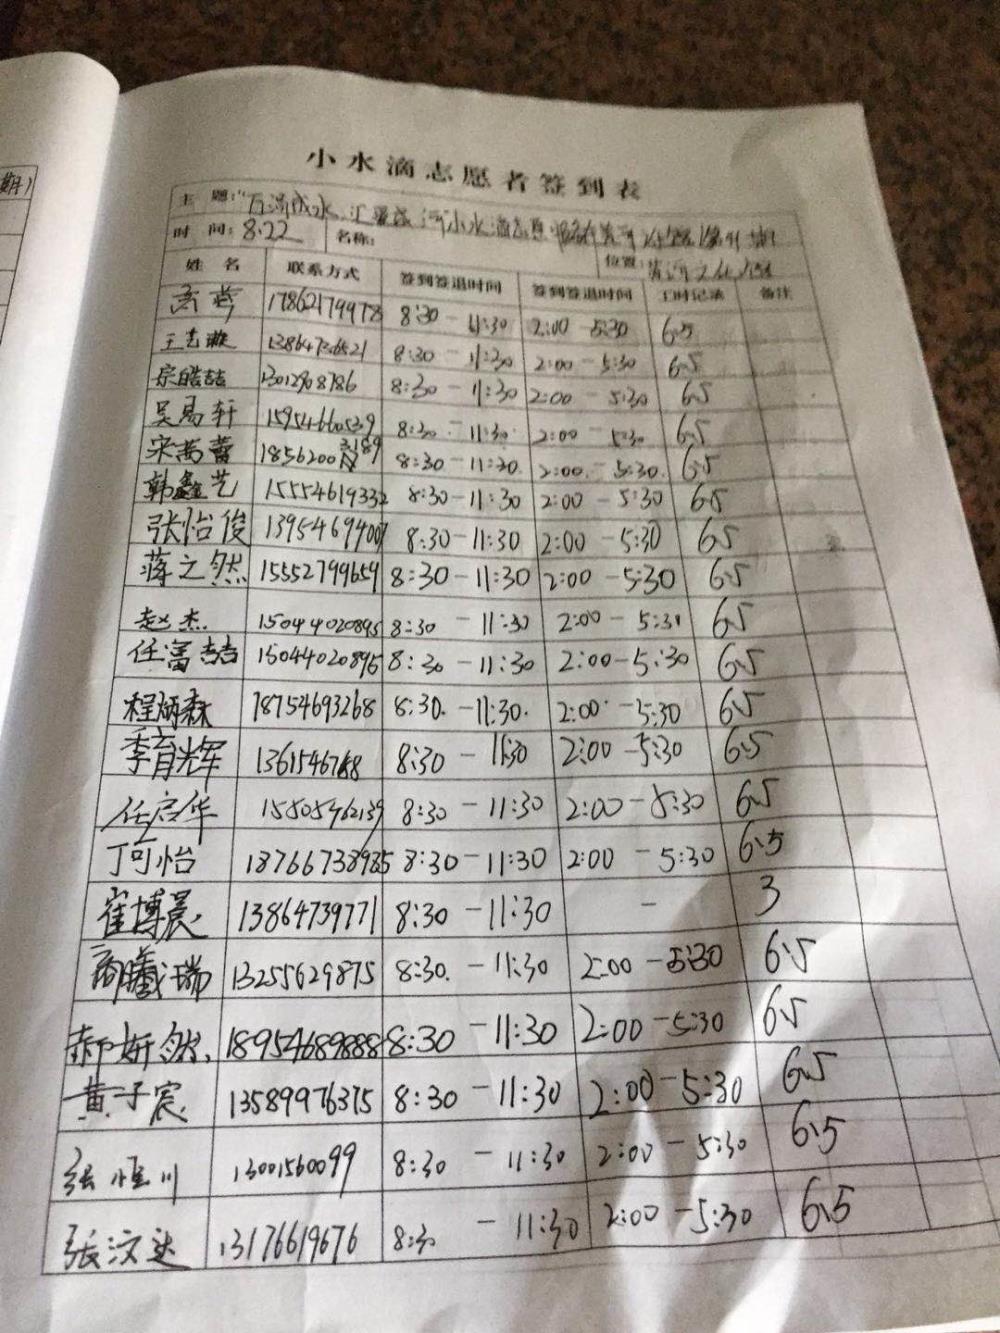 期)
小水滴志愿者签到表
主 题: "百滴成水 汇聚成河"小水滴志愿 期
时 间: 8.22 名称: 位置: 黄河文化馆
姓 名 联系方式 签到签退时间 签到签退时间 工时记录 备注
17862179978 8:30 - 11:30 2:00 - 5:30 6.5
王艺璇 13864736521 8:30 - 11:30 2:00 - 5:30 6.5
宗皓喆 13012968786 8:30 - 11:30 2:00 - 5:30 6.5
吴禹轩 15954660539 8:30 - 11:30 2:00 - 5:30 6.5
宋茜蕾 18562003189 8:30 - 11:30 2:00 - 5:30 6.5
韩鑫艺 15554619332 8:30 - 11:30 2:00 - 5:30 6.5
张怡俊 13954694007 8:30 - 11:30 2:00 - 5:30 6.5
蒋之然 15552799659 8:30 - 11:30 2:00 - 5:30 6.5
赵杰 15044020895 8:30 - 11:30 2:00 - 5:30 6.5
任富喆 15044020895 8:30 - 11:30 2:00 - 5:30 6.5
程炳森 18754693268 8:30 - 11:30 2:00 - 5:30 6.5
季育辉 1361546768 8:30 - 11:30 2:00 - 5:30 6.5
任启华 15805462139 8:30 - 11:30 2:00 - 5:30 6.5
丁可怡 18766738985 8:30 - 11:30 2:00 - 5:30 6.5
崔博晨 13864739771 8:30 - 11:30 - 3
商曦瑞 13255629875 8:30 - 11:30 2:00 - 5:30 6.5
郝妍然 18954689888 8:30 - 11:30 2:00 - 5:30 6.5
黄子宸 13589976375 8:30 - 11:30 2:00 - 5:30 6.5
张恒川 13001560099 8:30 - 11:30 2:00 - 5:30 6.5
张汶达 13176619676 8:30 - 11:30 2:00 - 5:30 6.5